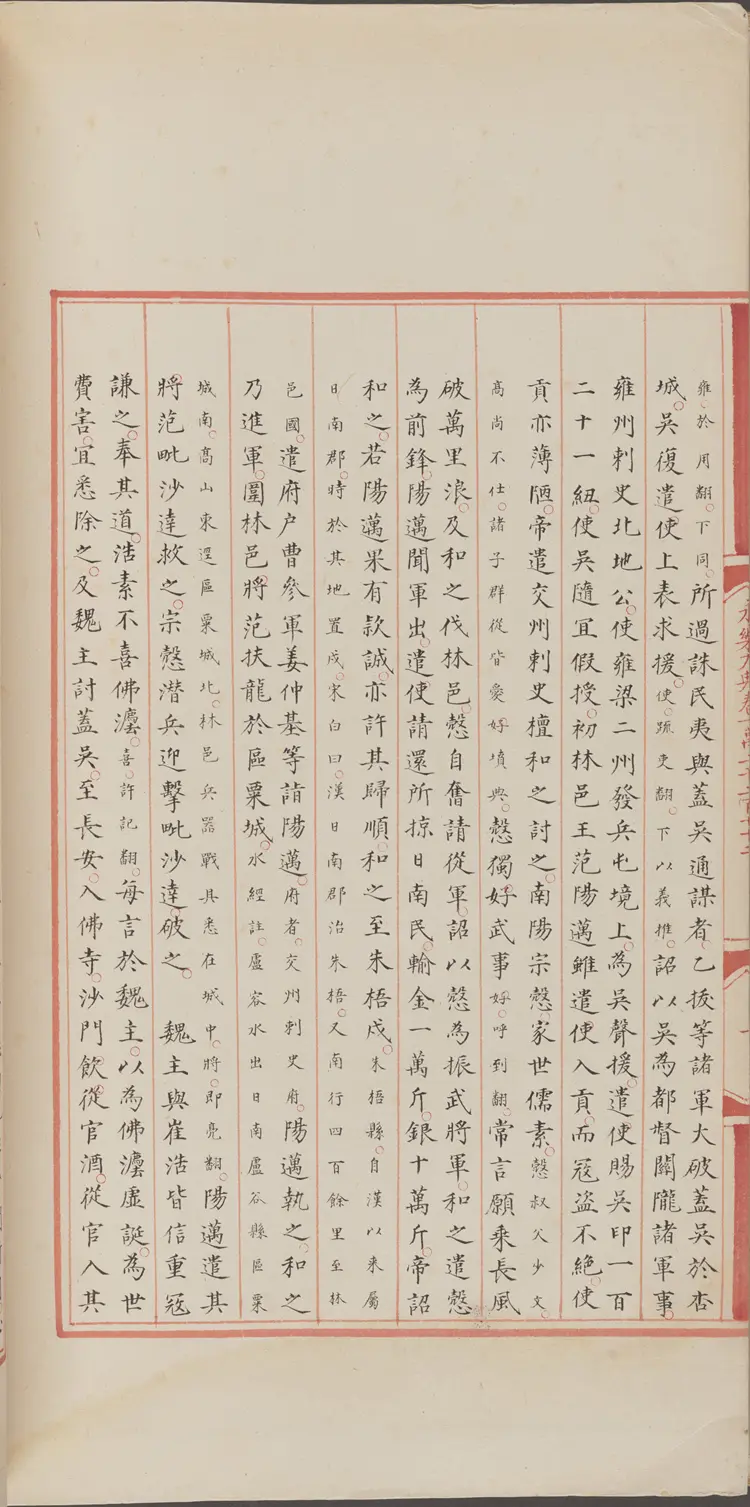 雍。於用翻。下同。所過誅民夷與蓋吳通謀者。乙拔等諸軍大破蓋吳於杏
城。吳復遣使上表求援。使。疏吏翻。下以義推。詔以吳為都督關隴諸軍事。
雍州刺史北地公。使雍梁二州發兵屯境上。為吳聲援。遣使賜吳印一百
二十一紐。使吳隨冝假授。初林邑王范陽邁雖遣使入貢。而寇盜不絶。使
貢亦薄陋。帝遣交州刺史檀和之討之。南陽宗慤。家世儒素。慤叔父少文。
高尚不仕。諸子群從皆愛好墳典。慤獨好武事。好。呼到翻。常言願乘長風
破萬里浪。及和之伐林邑。慤自奮請從軍。詔以慤為振武將軍。和之遣慤
為前鋒。陽邁聞軍出。遣使請還所掠日南民。輸金一萬斤。銀十萬斤。帝詔
和之。若陽邁果有款誠。亦許其歸順。和之至朱梧戍。朱梧縣。自漢以來屬
日南郡。時於其地置戍。宋白曰。漢日南郡治朱梧。又南行四百餘里至林
邑國。遣府户曹參軍姜仲基等詣陽邁。府者。交州刺史府。陽邁執之。和之
乃進軍。圍林邑將范扶龍於區粟城。水經註。盧容水出日南盧谷縣區粟
城南。高山東逕區粟城北。林邑兵器戰具悉在城中。將。即亮翻。陽邁遣其
將范毗沙達救之。宗慤潛兵迎擊毗沙達。破之。 魏主與崔浩皆信重寇
謙之。奉其道。浩素不喜佛灋。喜。許記翻。每言於魏主。以為佛灋虛誕。為世
費害。冝悉除之。及魏主討蓋吳。至長安。入佛寺。沙門飲從官酒。從官入其